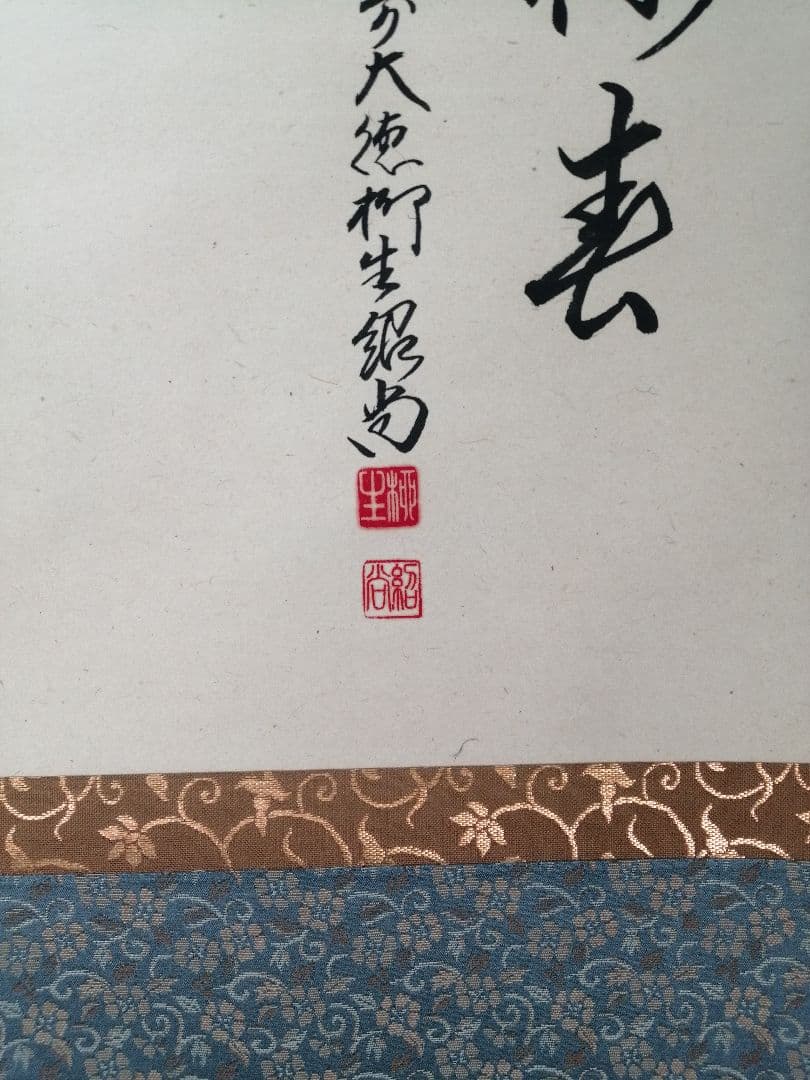 春
大徳柳生紹尚
柳生
紹尚